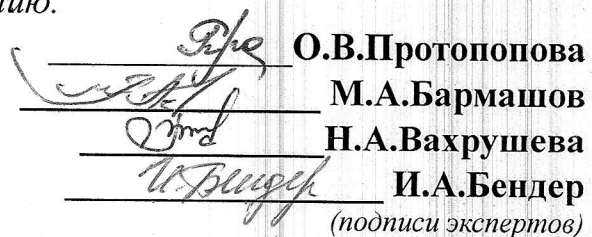 нию.
О.В.Протопопова
М.А.Бармашов
Н.А.Вахрушева
И.Бендер И.А.Бендер
(подписи экспертов)